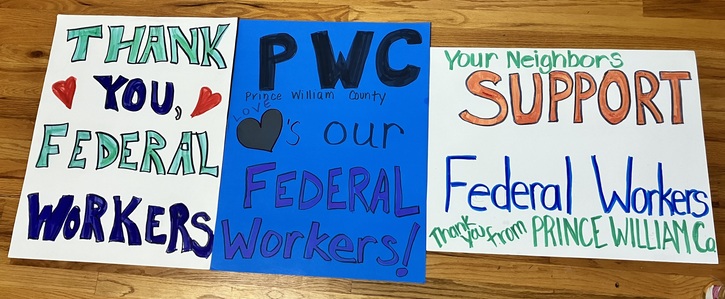 THANK
YOU,
FEDERAL
WORKERS
PWC
Prince William County
LOVE
's our
FEDERAL
Workers!
Your Neighbors
SUPPORT
Federal Workers
Thank you From PRINCE WILLIAM Co